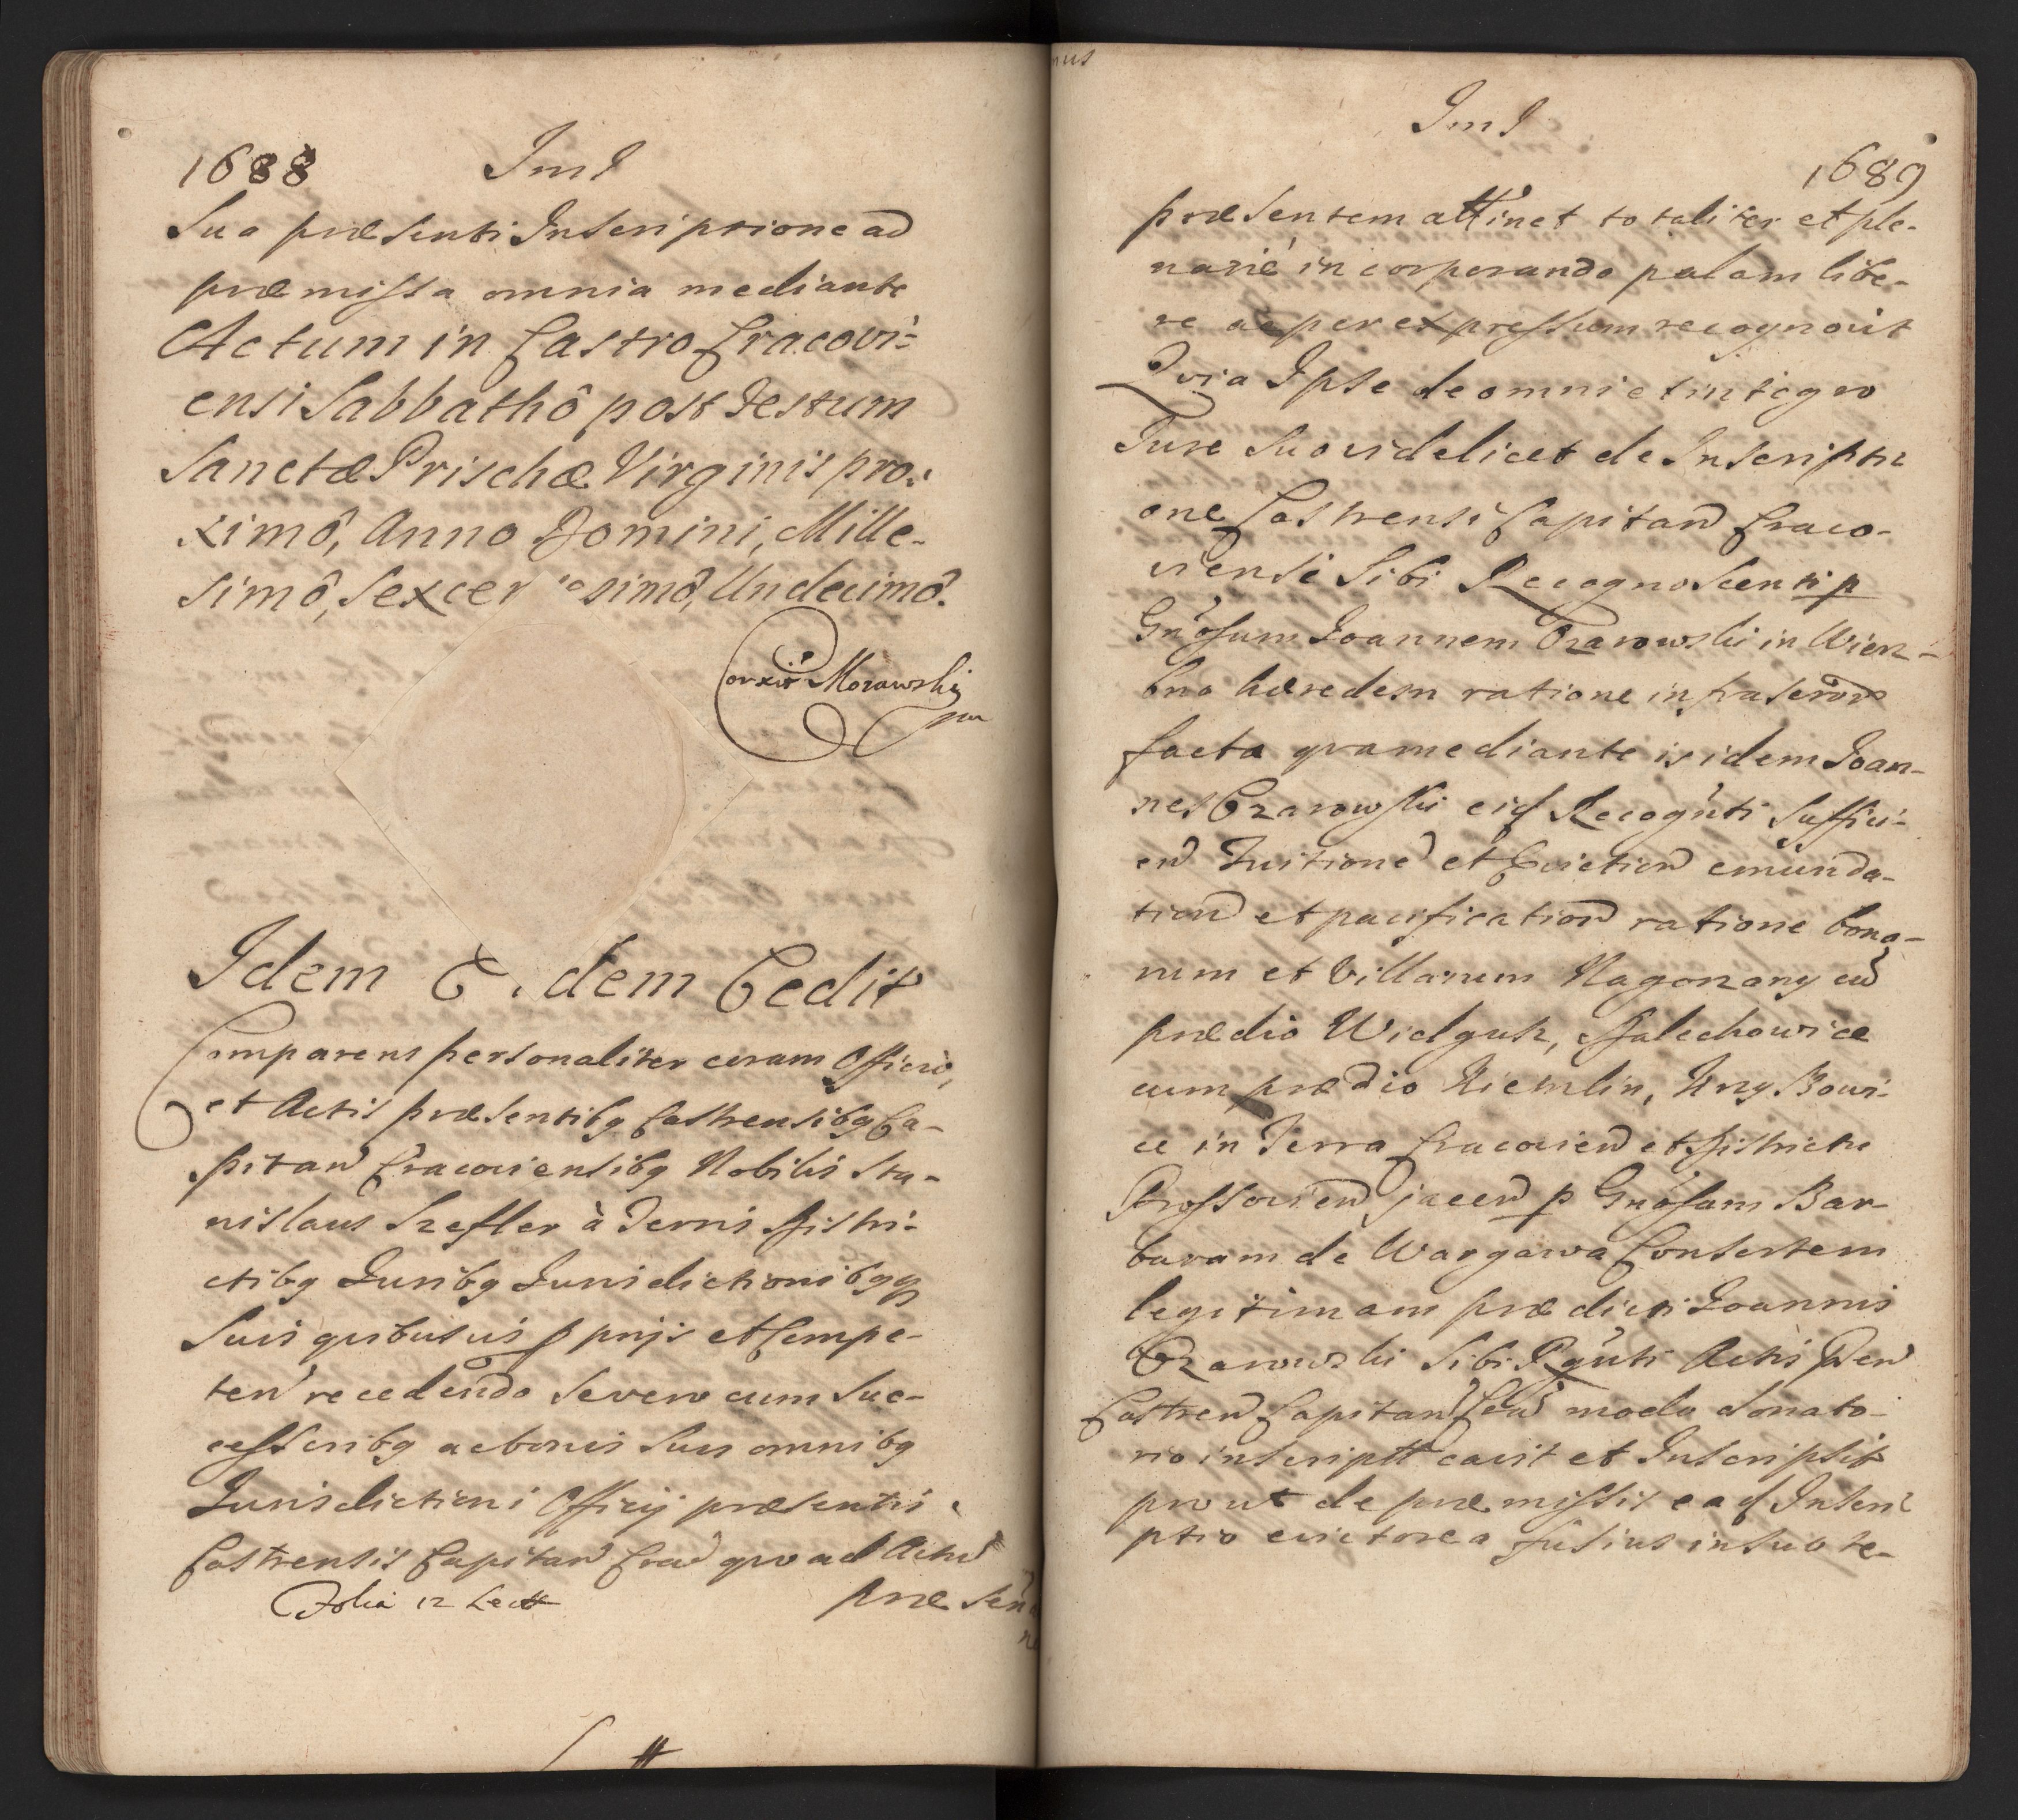 1688
Jm̃J
Sua præsenti Inscriptione ad
præmissa omnia mediante
Actum in Castro Cracovi-
ensi Sabbathô post Festum
Sanctæ Prischæ Virginis pro-
ximô, Anno Domini, Mille-
simô, Sexcen simô, Undecimô.
Correxit Morawski
mp
Idem E dem Cedit
Comparens personaliter coram Officio,
et Actis præsentibq Castrensibq Ca-
pitan Cracoviensibq Nobilis Sta-
nislaus Szefler à Terris Distri-
ctibq Juribq Jurisdictionibqq
Suis quibusvis pprijs et Compe-
ten recedendo Severo cum Suc-
cessoribq ac bonis Suis omnibq
Jurisdictioni Officij præsentis
Castrensis Capitan Crac quo ad Actu
Folia 12 Lect
præsen
Jm̃J
1689
præsentem attinet totaliter et ple-
nariè incorporando palam libe-
re ac per expressum recognovit
Quia Ipse de omni et integro
Jure Suo videlicet de Inscripti
one Castrensi Capitan Craco-
viensi Sibi Recognoscenti p
Gnosum Joannem Ozarowski in Wierz-
bno hæredem ratione infrascrior
facta qua mediante is idem Joan-
nes Ozarowski eid Recognti Suffici-
en Tuitione et Eviction emunda-
tion et pacification ratione bono-
rum et Villarum Nagorzany cu
prædio Wielguk, Falechowice
cum prædio Kiemlin, Krzy Bowi-
ce in Terra Cracovien et Districtu
Prossovien jacen p Gnosam Bar-
baram de Wargawa Consortem
legitimam prædicti Joannis
Ozarowski Sibi Rgnti Actis Pñ
Castren Capitan Crac modo donato-
rio inscript cavit et Inscripsit
prout de præmissis ead Inscri
ptio evictorea fusius in Suo te-